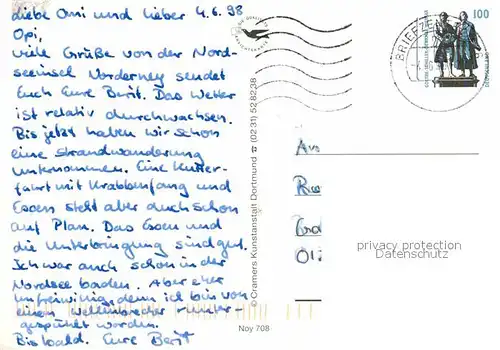 Liebe Omi und lieber 4.6.98
Opi,
viele Grüße von der Nord-
seeinsel Norderney sendet
Euch Eure Berit. Das Wetter
ist relativ durchwachsen.
Bis jetzt haben wir schon
eine Strandwanderung
unternommen. Eine Kutter-
fahrt mit Krabbenfang und
Essen steht aber auch schon
auf Plan. Das Essen und
die Unterbringung sind gut.
Ich war auch schon in der
Nordsee baden. Aber eher
unfreiwillig, denn ich bin von
einem Wellenbrecher runter-
gespühlt worden.
Bis bald. Eure Berit
© Cramers Kunstanstalt Dortmund ☎ (02 31) 52 82 38
Noy 708
BRIEFZE
100
DEUTSCHLAND
privacy protection
Datenschutz